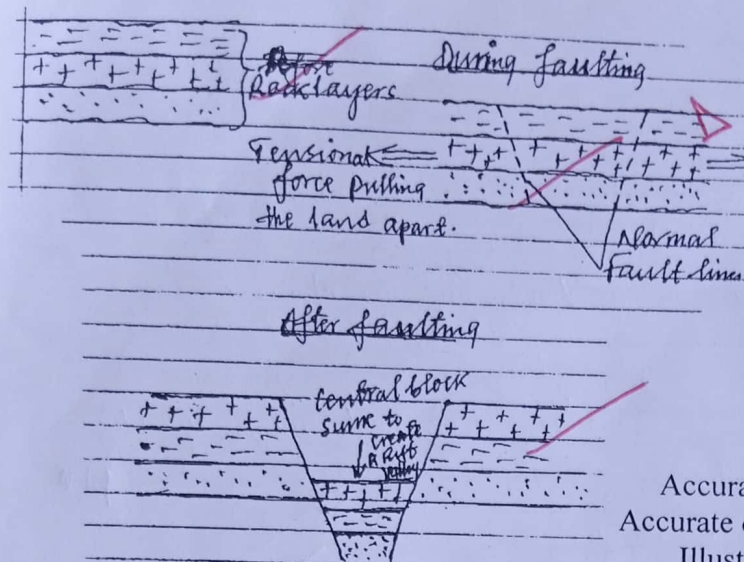 Rocklayers
During faulting
Tensional
force pulling
the land apart.
Normal
fault lines
After faulting
Central block
sunk to
create
a Rift
valley
Accura
Accurate
Illust